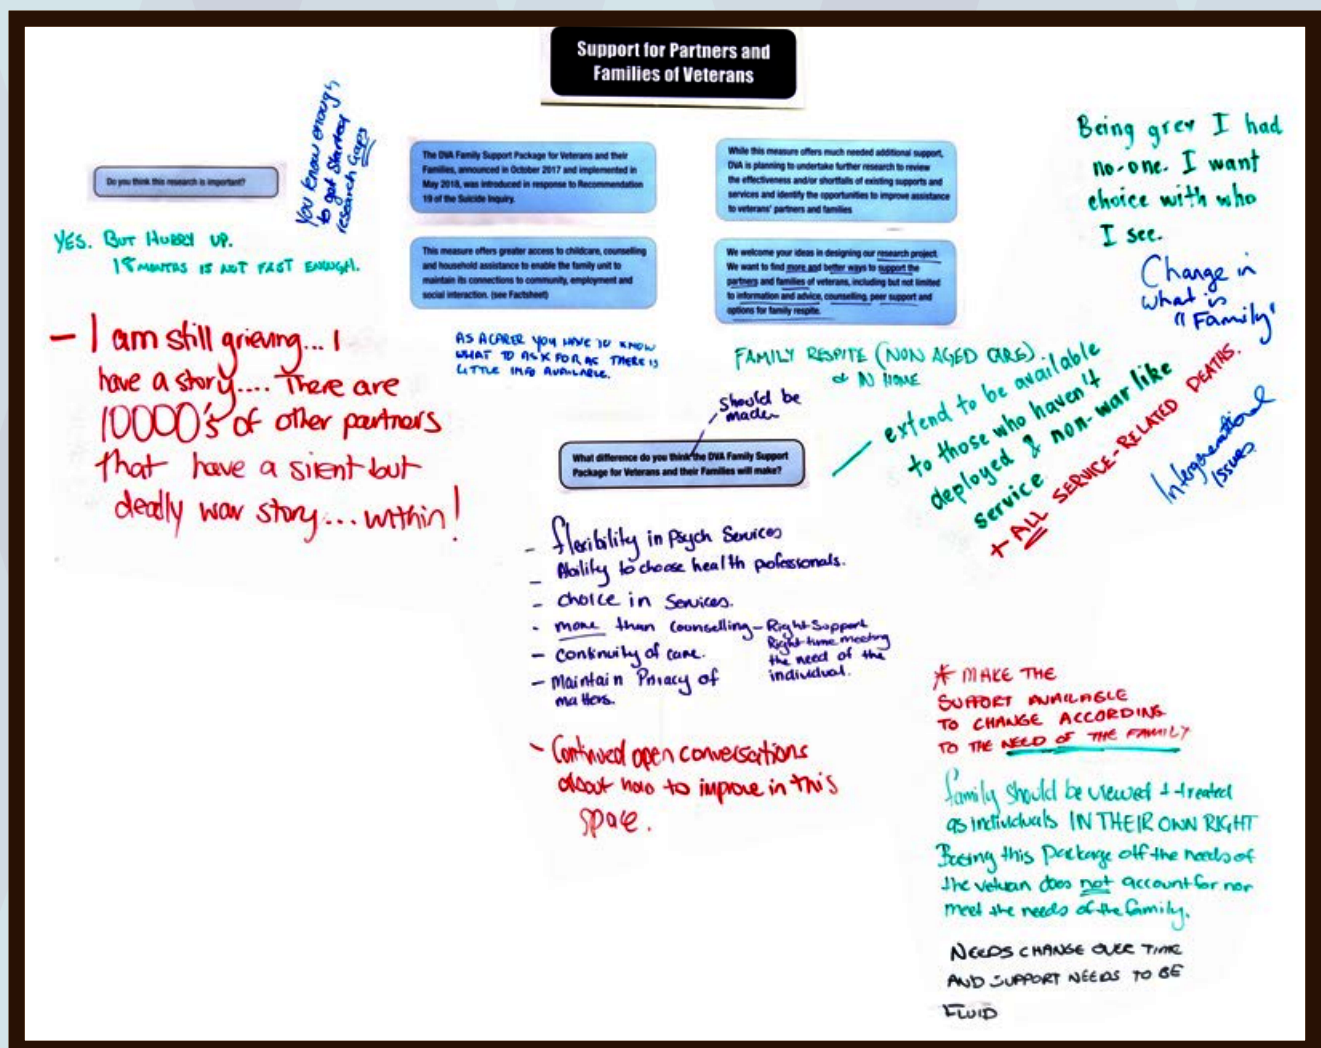 Support for Partners and
Families of Veterans
Do you think this research is important?
You know enough
to get started
research Gaps
YES. BUT HURRY UP.
18 MONTHS IS NOT FAST ENOUGH.
- I am still grieving... I
have a story.... There are
10000's of other partners
that have a silent but
deadly war story... within!
The DVA Family Support Package for Veterans and their
Families, announced in October 2017 and implemented in
May 2018, was introduced in response to Recommendation
19 of the Suicide Inquiry.
This measure offers greater access to childcare, counselling
and household assistance to enable the family unit to
maintain its connections to community, employment and
social interaction. (see Factsheet)
AS A CARER YOU HAVE TO KNOW
WHAT TO ASK FOR AS THERE IS
LITTLE INFO AVAILABLE.
While this measure offers much needed additional support,
DVA is planning to undertake further research to review
the effectiveness and/or shortfalls of existing supports and
services and identify the opportunities to improve assistance
to veterans' partners and families
We welcome your ideas in designing our research project.
We want to find more and better ways to support the
partners and families of veterans, including but not limited
to information and advice, counselling, peer support and
options for family respite.
FAMILY RESPITE (NON AGED CARE).
& IN HOME
Being grey I had
no-one. I want
choice with who
I see.
Change in
what is
"Family"
Intergenerational
issues
- extend to be available
to those who haven't
deployed & non-war like
service
+ ALL SERVICE-RELATED DEATHS.
should be
made
What difference do you think the DVA Family Support
Package for Veterans and their Families will make?
- flexibility in Psych Services
- Ability to choose health pofessionals.
- choice in Services.
- more than counselling - Right Support
Right time meeting
the need of the
individual.
- continuity of care.
- Maintain Privacy of
matters.
- Continued open conversations
about how to improve in this
space.
* MAKE THE
SUPPORT AVAILABLE
TO CHANGE ACCORDING
TO THE NEED OF THE FAMILY
family should be viewed + treated
as individuals IN THEIR OWN RIGHT
Basing this package off the needs of
the veteran does not account for nor
meet the needs of the family.
NEEDS CHANGE OVER TIME
AND SUPPORT NEEDS TO BE
FLUID